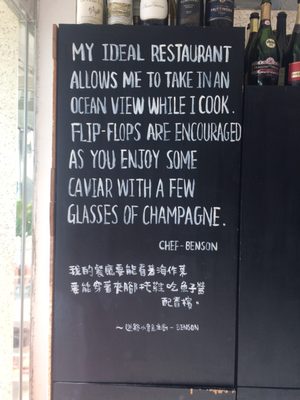 MY IDEAL RESTAURANT
ALLOWS ME TO TAKE IN AN
OCEAN VIEW WHILE I COOK.
FLIP-FLOPS ARE ENCOURAGED
AS YOU ENJOY SOME
CAVIAR WITH A FEW
GLASSES OF CHAMPAGNE.
CHEF-BENSON
我的餐廳要能看著海作菜
要能穿著夾腳拖鞋吃魚子醬
配香檳。
BENSON